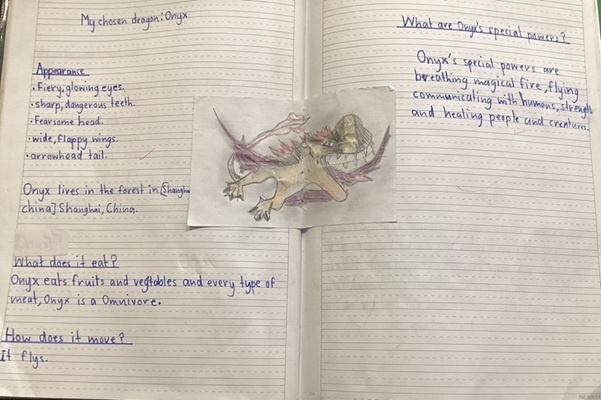 My chosen dragon: Onyx
Appearance
• Fiery, glowing eyes.
• sharp, dangerous teeth.
• Fearsome head.
• wide, flappy wings.
• arrowhead tail.
Onyx lives in the forest in [Shanghai
china] Shanghai, China.
What does it eat?
Onyx eats fruits and vegtables and every type of
meat, Onyx is a Omnivore.
How does it move?
It flys.
What are Onyx's special powers?
Onyx's special powers are
breathing magical fire, flying
communicating with humans, strength
and healing people and creatures.